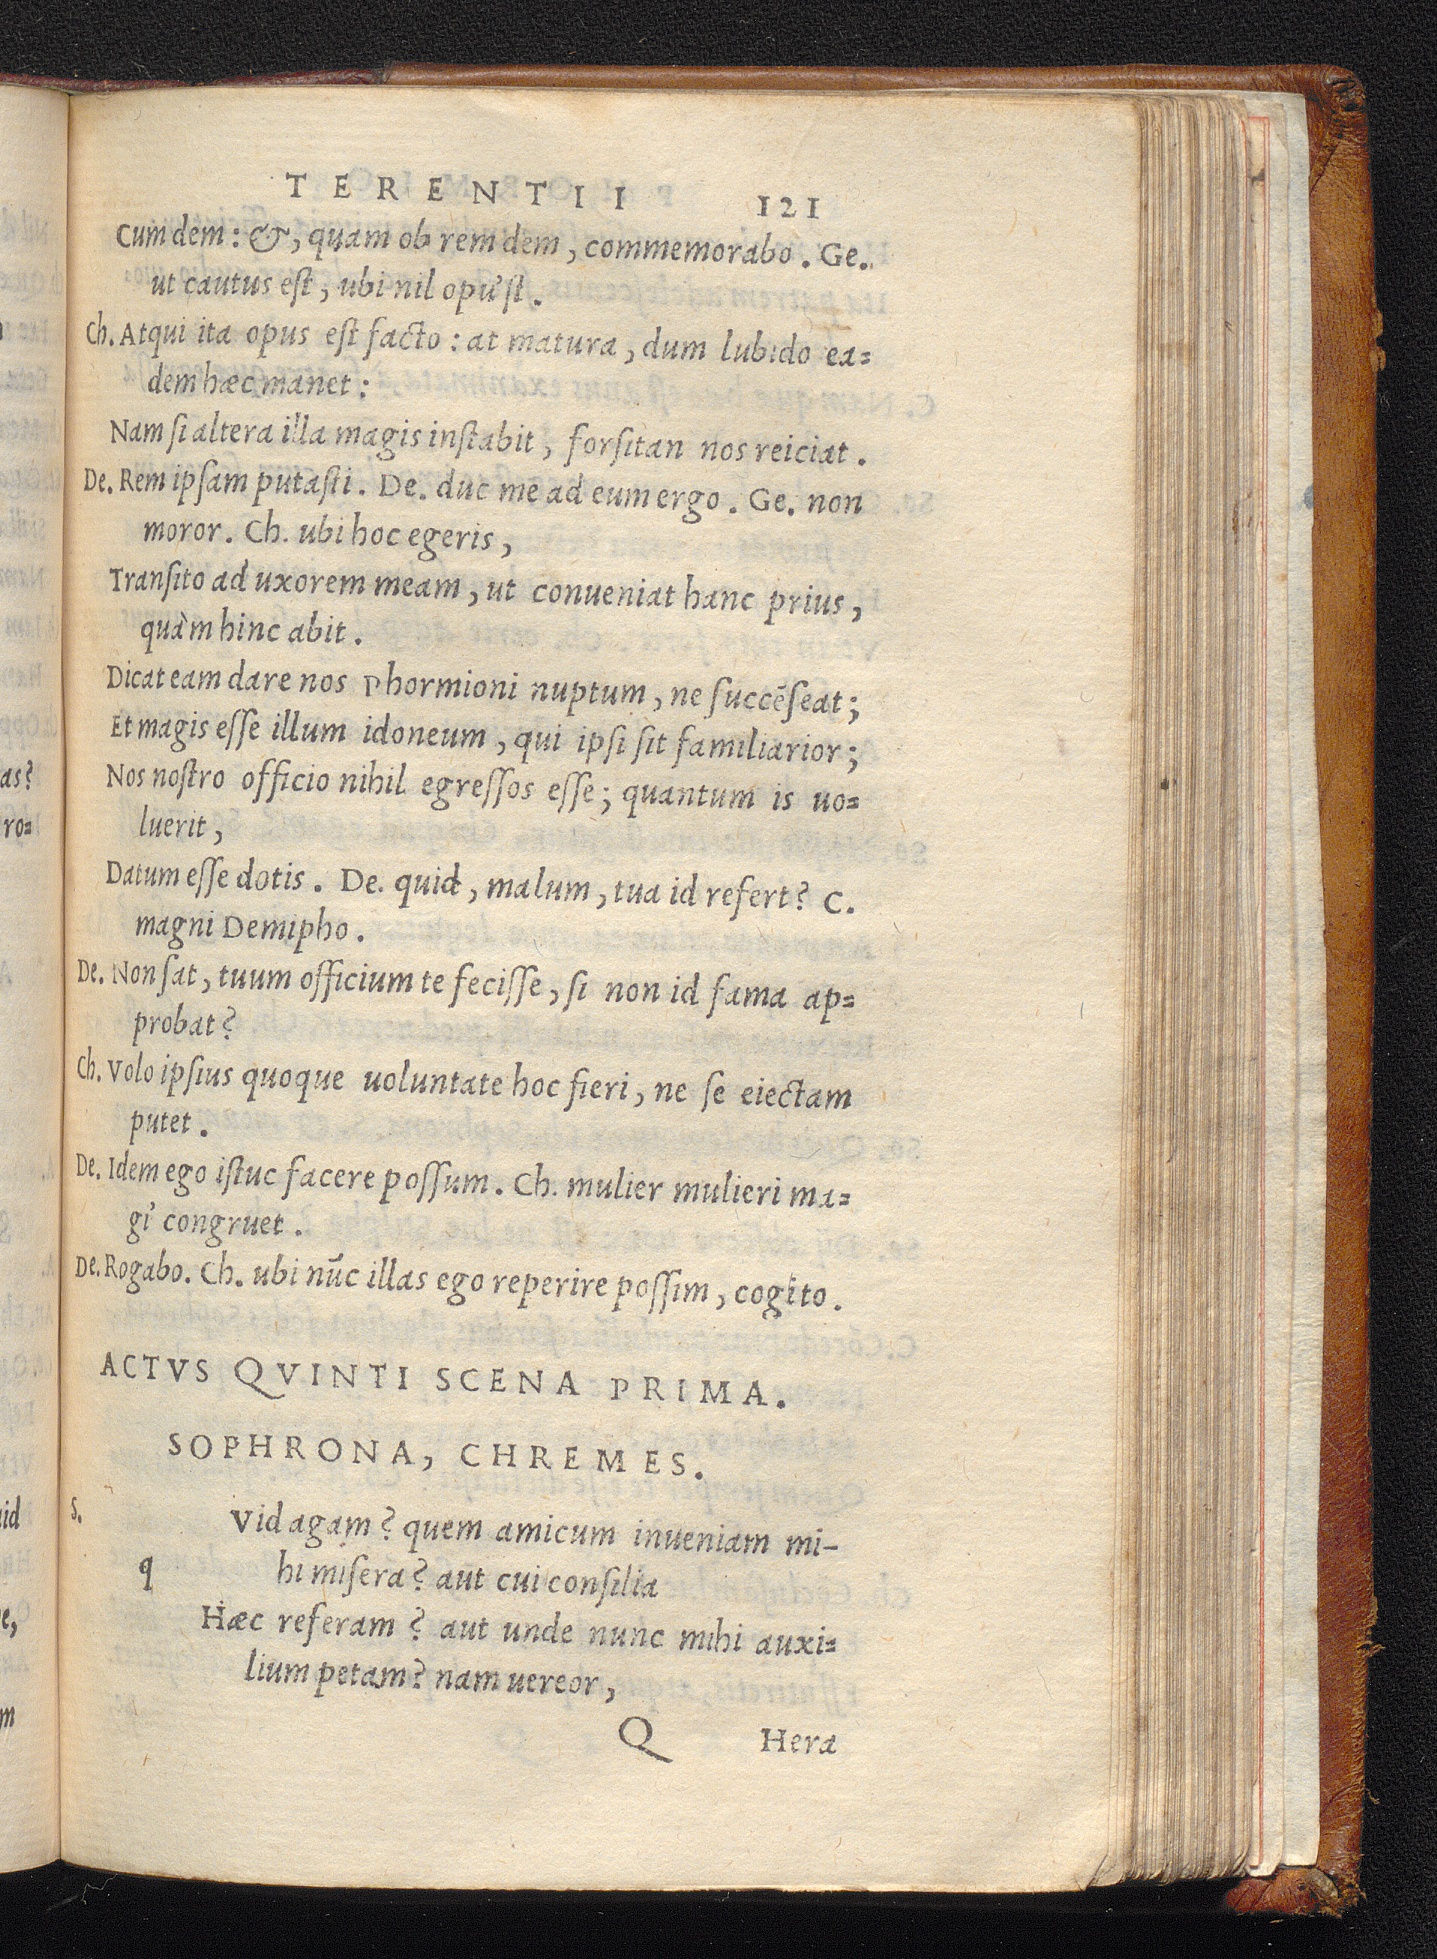 TERENTII 121
Cum dem: &, quam ob rem dem, commemorabo. Ge.
ut cautus est, ubi nil opu'st.
Ch. Atqui ita opus est facto: at matura, dum lubido ea=
dem hæc manet:
Nam si altera illa magis instabit, forsitan nos reiciat.
De. Rem ipsam putasti. De. duc me ad eum ergo. Ge. non
moror. Ch. ubi hoc egeris,
Transito ad uxorem meam, ut conueniat hanc prius,
quàm hinc abit.
Dicat eam dare nos Phormioni nuptum, ne succēseat;
Et magis esse illum idoneum, qui ipsi sit familiarior;
Nos nostro officio nihil egressos esse; quantum is uo=
luerit,
Datum esse dotis. De. quid, malum, tua id refert? C.
magni Demipho.
De. Non sat, tuum officium te fecisse, si non id fama ap=
probat?
Ch. Volo ipsius quoque uoluntate hoc fieri, ne se eiectam
putet.
De. Idem ego istuc facere possum. Ch. mulier mulieri ma=
gi' congruet.
De. Rogabo. Ch. ubi nūc illas ego reperire possim, cogito.
ACTVS QVINTI SCENA PRIMA.
SOPHRONA, CHREMES.
S. Vid agam? quem amicum inueniam mi-
q hi misera? aut cui consilia
Hæc referam? aut unde nunc mihi auxi=
lium petam? nam uereor,
Q Hera
as?
ro=
uid
e,
m